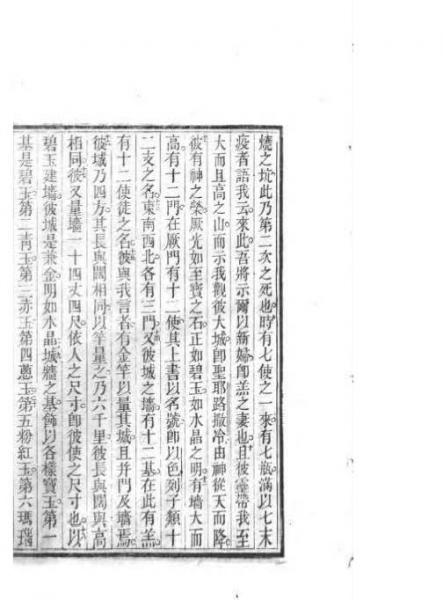 燒之坑此乃第二次之死也時有七使之一來有七瓶滿以七末
疫者語我云來此吾將示爾以新婦卽羔之妻也且彼靈帶我至
大而且高之山而示我觀彼大城卽聖耶路撒冷由神從天而降
彼有神之榮厥光如至寶之石正如碧玉如水晶之明有墻大而
高有十二門在厥門有十二使其上書以名號卽以色列子類十
二支之名東南西北各有三門又彼城之墻有十二基在此有羔
有十二使徒之名彼與我言者有金竿以量其城且幷門及墻焉
彼城乃四方其長與闊相同以竿量之乃六千里彼長與闊與高
相同彼又量墻一十四丈四尺依人之尺寸卽彼使之尺寸也以
碧玉建墻彼城是兼金明如水晶城牆之基飾以各樣寶玉第一
基是碧玉第二靑玉第三赤玉第四蔥玉第五粉紅玉第六瑪瑙